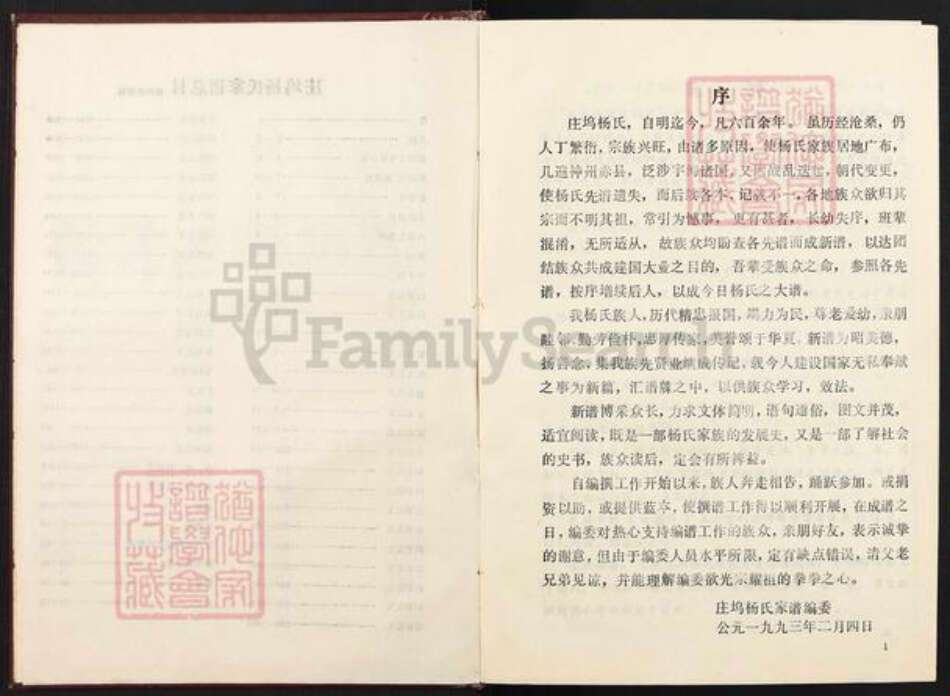 序
庄坞杨氏，自明迄今，凡六百余年。虽历经沧桑，仍
人丁繁衍，宗族兴旺，由诸多原因，使杨氏家族居地广布，
几遍神州赤县，泛涉宇海诸国，又因战乱迭起，朝代变更，
使杨氏先谱遗失，而后族各本、记载不一，各地族众欲归其
宗而不明其祖，常引为憾事，更有甚者，长幼失序，班辈
混淆，无所适从，故族众均盼查各先谱而成新谱，以达团
结族众共成建国大业之目的，吾辈受族众之命，参照各先
谱，按序增续后人，以成今日杨氏之大谱。
我杨氏族人，历代精忠报国，竭力为民，尊老爱幼，亲朋
睦邻，勤劳俭朴，忠厚传家，美誉颂于华夏，新谱为昭美德，
扬善念，集我族先贤业绩成传记，载今人建设国家无私奉献
之事为新篇，汇谱牒之中，以供族众学习，效法。
新谱博采众长，力求文体简明，语句通俗，图文并茂，
适宜阅读，既是一部杨氏家族的发展史，又是一部了解社会
的史书，族众读后，定会有所裨益。
自编撰工作开始以来，族人奔走相告，踊跃参加。或捐
资以助，或提供蓝本，使撰谱工作得以顺利开展，在成谱之
日，编委对热心支持编谱工作的族众，亲朋好友，表示诚挚
的谢意，但由于编委人员水平所限，定有缺点错误，请父老
兄弟见谅，并能理解编委欲光宗耀祖的拳拳之心。
庄坞杨氏家谱编委
公元一九九三年二月四日
1
FamilySearch